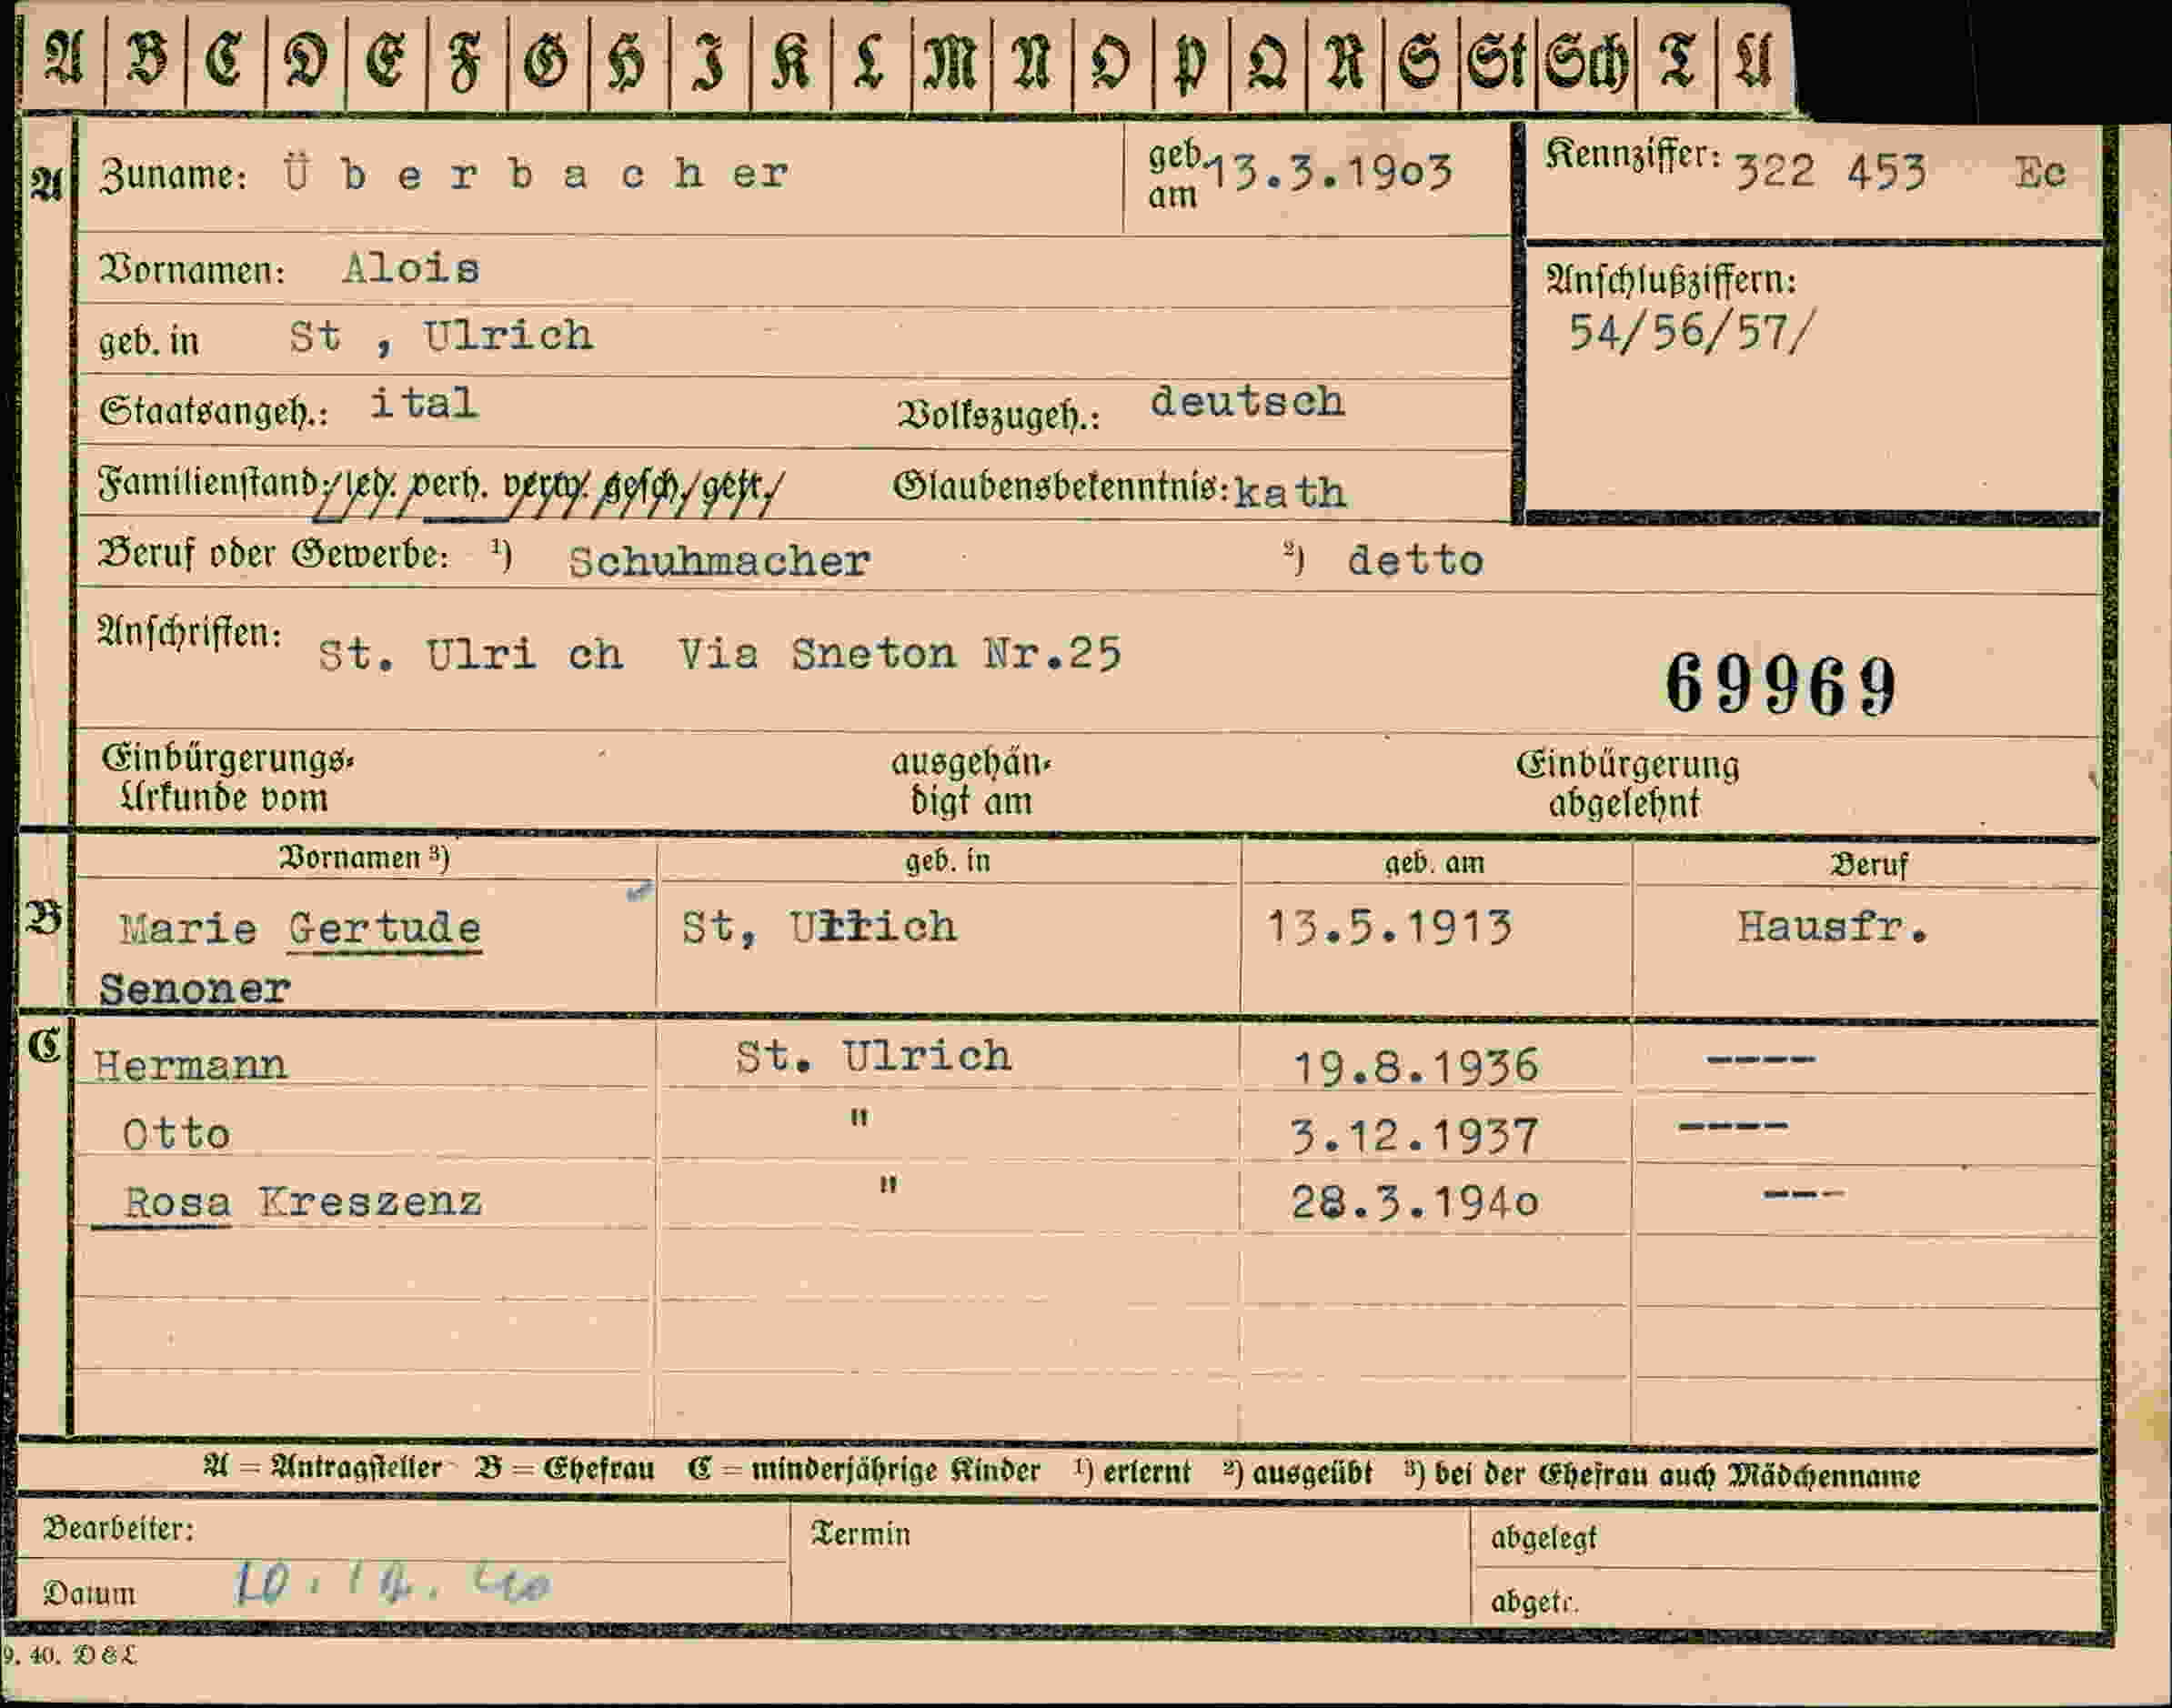 A B C D E F G H I K L M N O P Q R S St Sch T U
A Zuname: Ü b e r b a c h er geb. am 13.3.1903 Kennziffer: 322 453 Ec
Vornamen: Alois
Anschlußziffern:
54/56/57/
geb. in St , Ulrich
Staatsangeh.: ital Volkszugeh.: deutsch
Familienstand: led. verh. verw. gesch. getr. Glaubensbekenntnis: kath
Beruf oder Gewerbe: ¹) Schuhmacher ²) detto
Anschriften: St. Ulri ch Via Sneton Nr.25
69969
Einbürgerungs- ausgehän- Einbürgerung
Urkunde vom digt am abgelehnt
Vornamen ³) geb. in geb. am Beruf
B Marie Gertude St, Ulrich 13.5.1913 Hausfr.
Senoner
C Hermann St. Ulrich 19.8.1936 ----
Otto " 3.12.1937 ----
Rosa Kreszenz " 28.3.1940 ---
A = Antragsteller B = Ehefrau C = minderjährige Kinder ¹) erlernt ²) ausgeübt ³) bei der Ehefrau auch Mädchenname
Bearbeiter: Termin abgelegt
Datum 10.12.40 abgetr.
9. 40. D&L